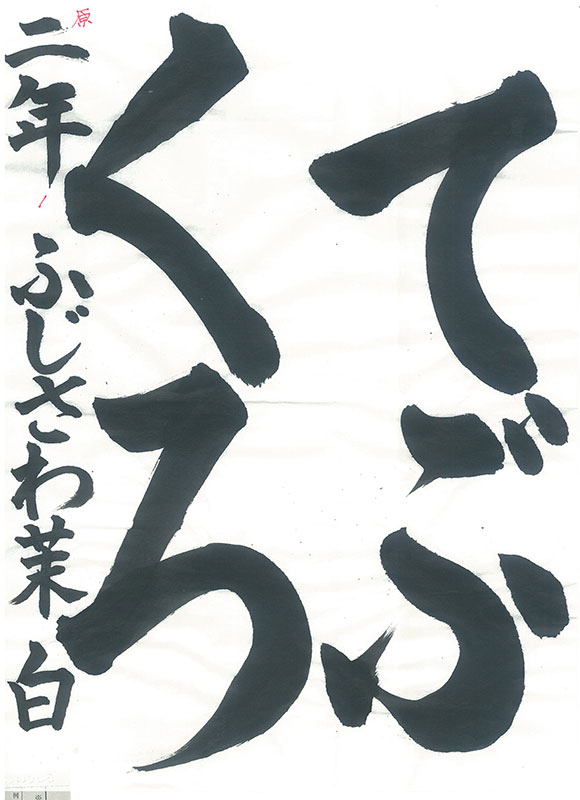 てぶ
くろ
二年 ふじさわ茉白
原